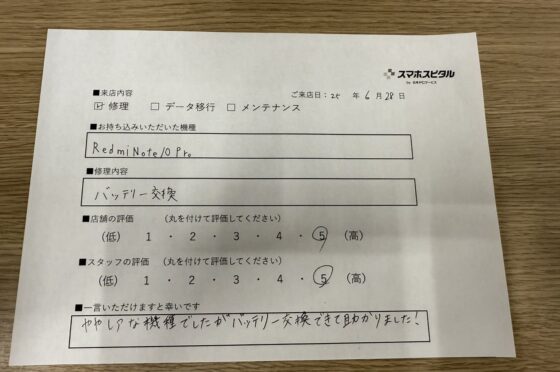 スマホスピタル
■来店内容
ご来店日：25 年 6 月 28 日
☑ 修理 □ データ移行 □ メンテナンス
■お持ち込みいただいた機種
Redmi Note 10 Pro
■修理内容
バッテリー交換
■店舗の評価 （丸を付けて評価してください）
（低） 1 ・ 2 ・ 3 ・ 4 ・ 5 （高）
■スタッフの評価 （丸を付けて評価してください）
（低） 1 ・ 2 ・ 3 ・ 4 ・ 5 （高）
■一言いただけますと幸いです
ややレアな機種でしたがバッテリー交換できて助かりました！